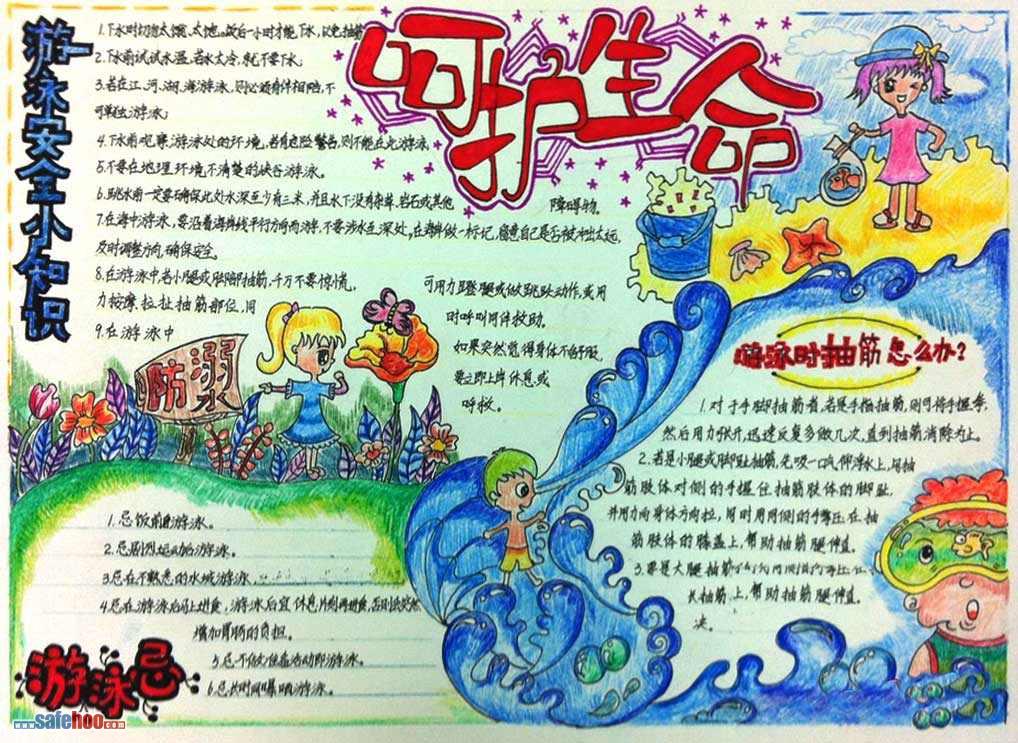 呵护生命
游泳安全小知识
1.下水时切勿太饿、太饱。饭后一小时才能下水，以免抽筋
2.下水前试试水温，若水太冷，就不要下水；
3.若在江、河、湖、海游泳，则必须有伴相陪，不
可单独游泳；
4.下水前观察游泳处的环境，若有危险警告，则不能在此游泳
5.不要在地理环境不清楚的峡谷游泳。
6.跳水前一定要确保此处水深至少有三米，并且水下没有杂草、岩石或其他 障碍物。
7.在海中游泳，要沿着海岸线平行方向而游，不要涉水至深处，在海岸做一标记，留意自己是否被冲出太远，
及时调整方向，确保安全。
8.在游泳中若小腿或脚部抽筋，千万不要惊慌， 可用力蹬腿或做跳跃动作，或用
力按摩、拉扯抽筋部位，同 时呼叫同伴救助。
9.在游泳中 如果突然觉得身体不舒服，
要立即上岸休息或
呼救。
防溺
游泳时抽筋怎么办？
1.对于手脚抽筋者，若是手指抽筋，则可将手握拳，
然后用力张开，迅速反复多做几次，直到抽筋消除为止。
2.若是小腿或脚趾抽筋，先吸一口气仰浮水上，用抽
筋肢体对侧的手握住抽筋肢体的脚趾，
并用力向身体方向拉，同时用同侧的手掌压在抽
筋肢体的膝盖上，帮助抽筋腿伸直。
3.要是大腿抽筋
抽筋上，帮助抽筋腿伸直。
决。
1.忌饭前后游泳。
2.忌剧烈运动后游泳。
3.忌在不熟悉的水域游泳。
4.忌在游泳后马上进食，游泳后宜休息片刻再进食，否则会突然
增加胃肠的负担。
5.忌不做准备活动即游泳。
6.忌长时间曝晒游泳。
游泳忌
www.safehoo.com